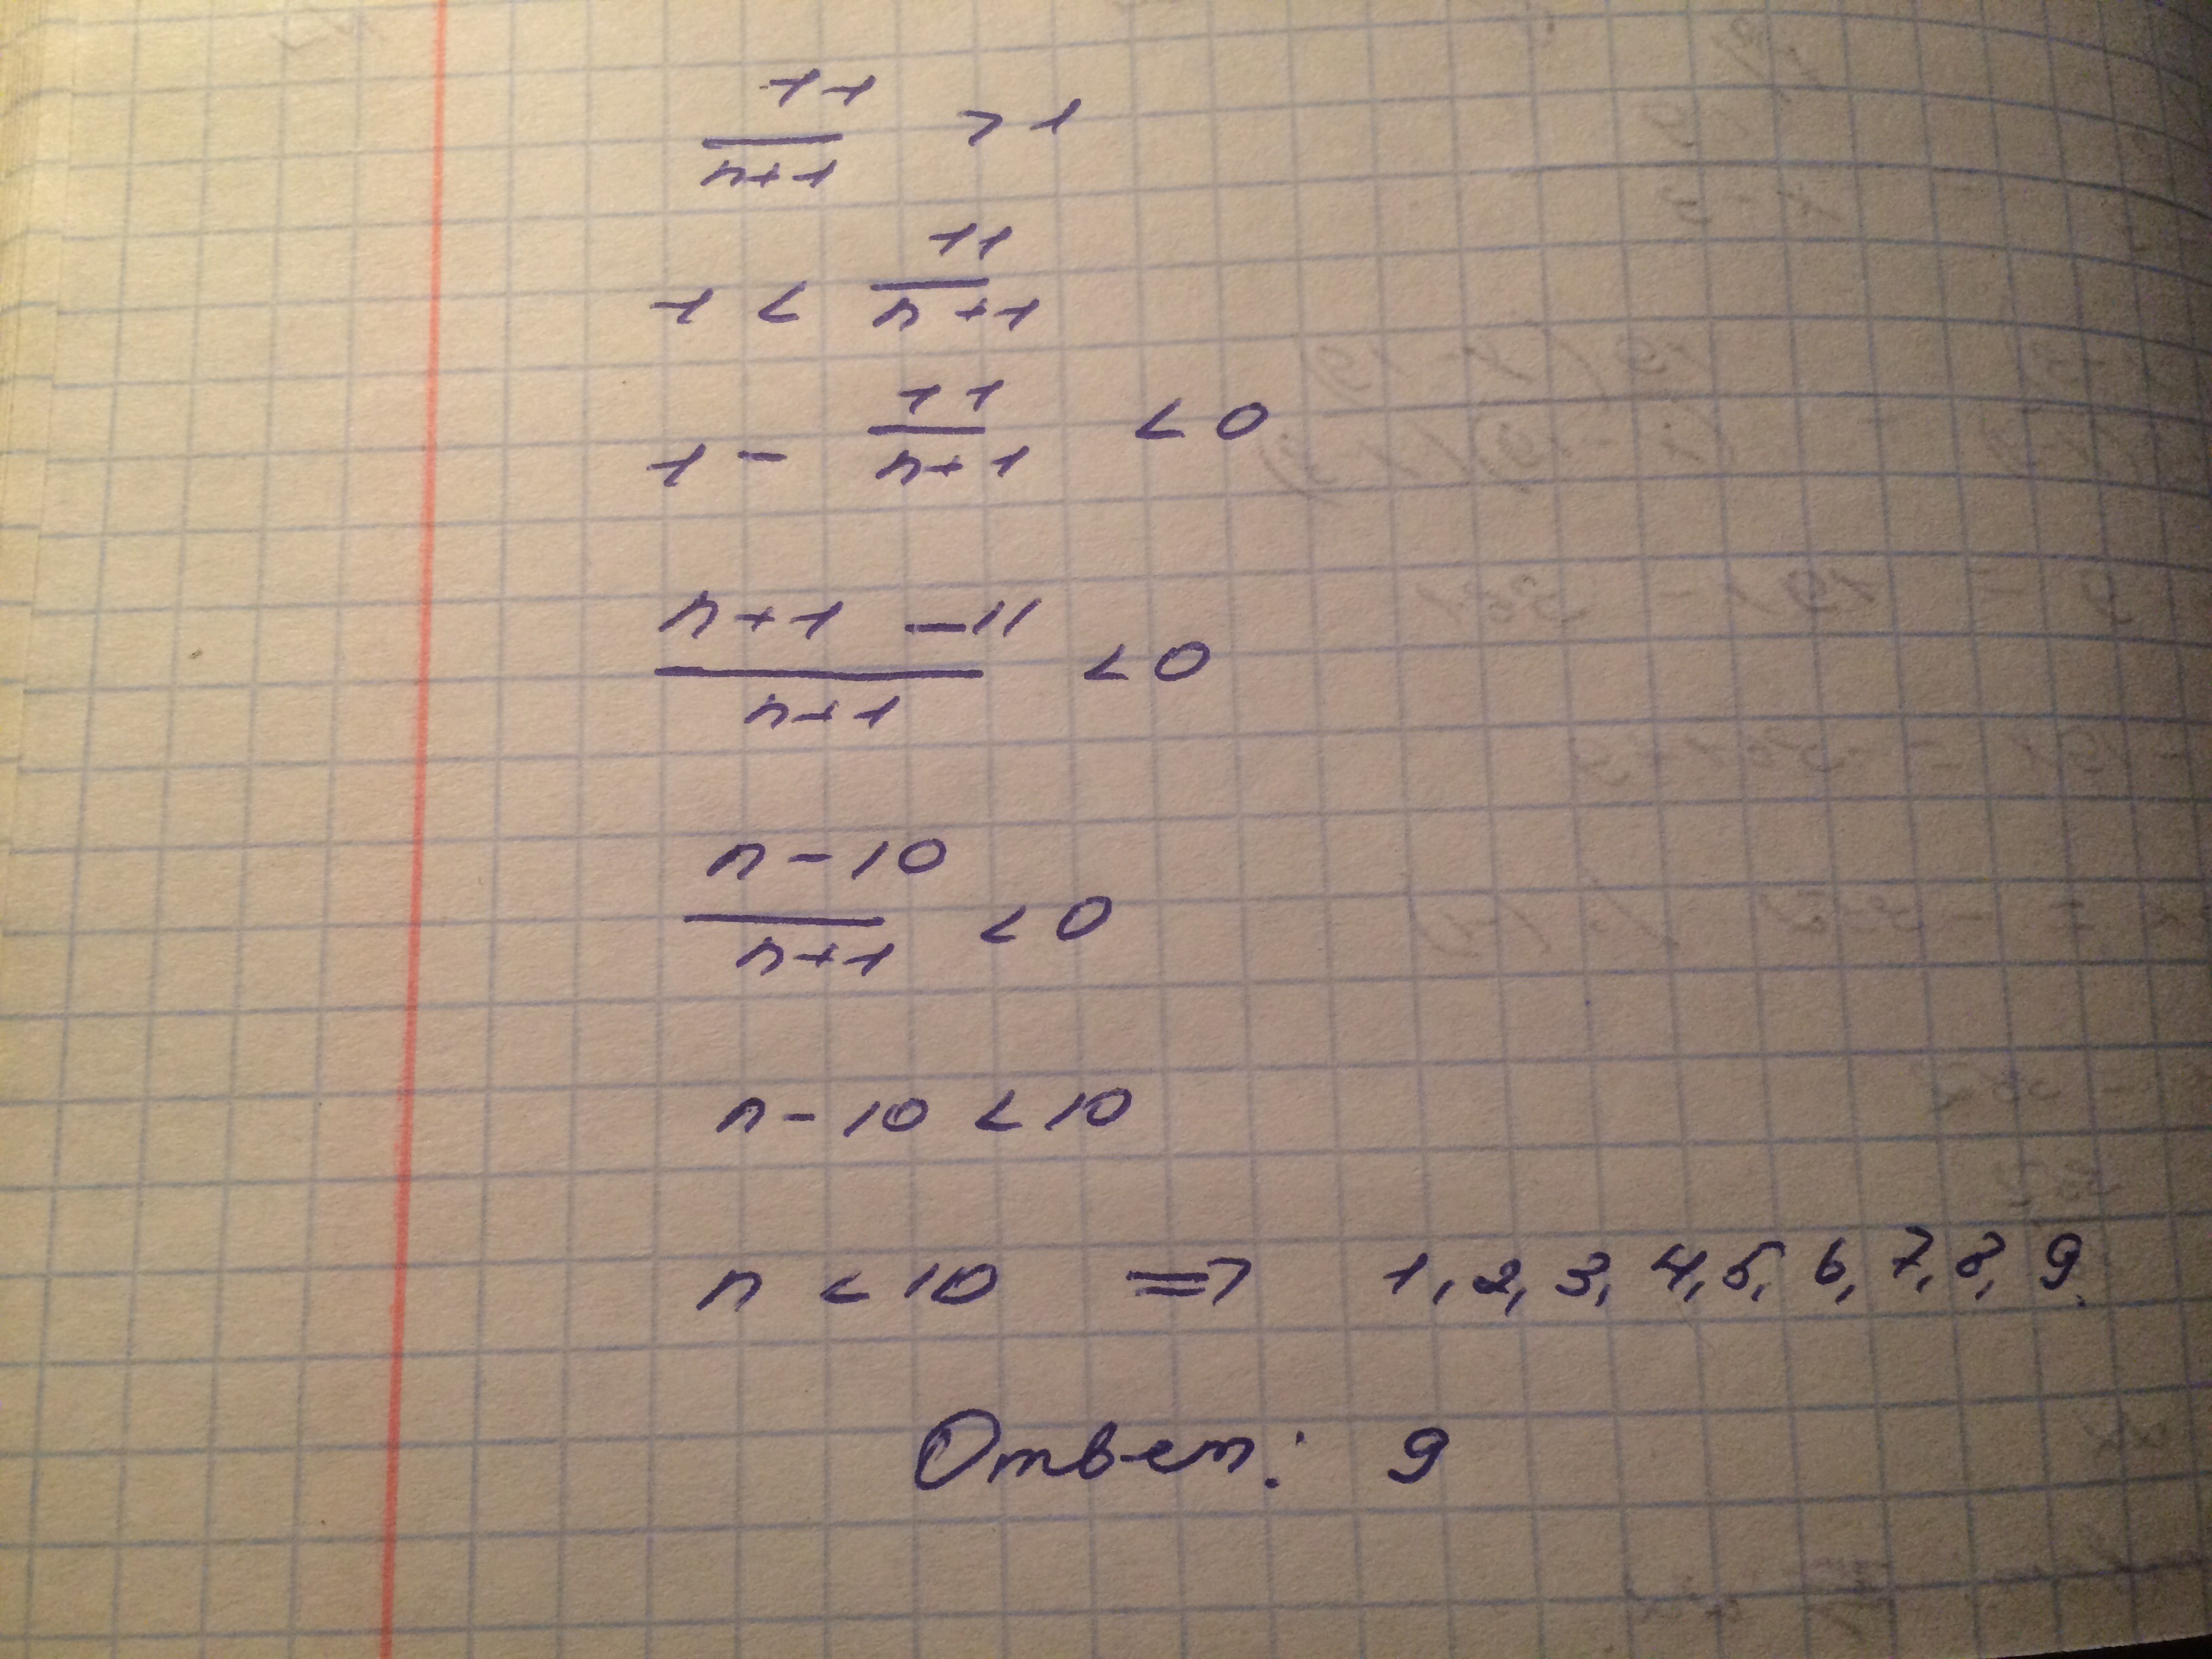 11/(n+1) > 1
1 < 11/(n+1)
1 - 11/(n+1) < 0
(n+1 - 11)/(n+1) < 0
(n - 10)/(n+1) < 0
n - 10 < 10
n < 10 => 1, 2, 3, 4, 5, 6, 7, 8, 9.
Ответ: 9